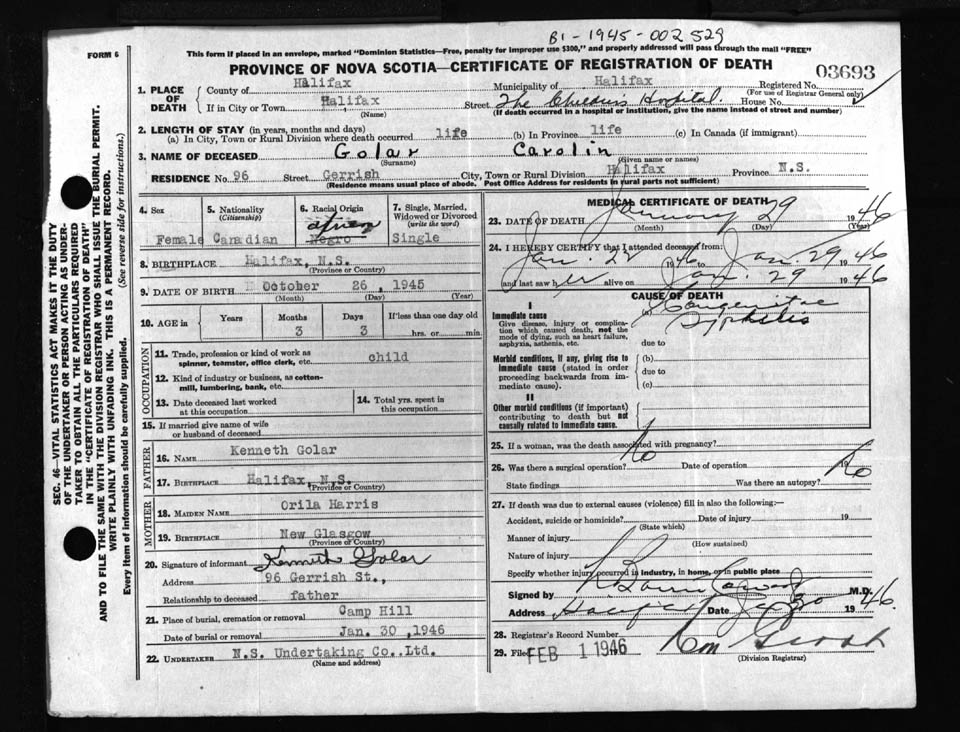 B1-1945-002529
FORM 6
This form if placed in an envelope, marked "Dominion Statistics—Free, penalty for improper use $300," and properly addressed will pass through the mail "FREE"
PROVINCE OF NOVA SCOTIA—CERTIFICATE OF REGISTRATION OF DEATH
03693
1. PLACE OF DEATH
County of Halifax Municipality of Halifax Registered No.
(For use of Registrar General only)
If in City or Town Halifax Street The Children's Hospital House No.
(Name) (If death occurred in a hospital or institution, give the name instead of street and number)
2. LENGTH OF STAY (in years, months and days)
(a) In City, Town or Rural Division where death occurred life (b) In Province life (c) In Canada (if immigrant)
3. NAME OF DECEASED Golar Carolin
(Surname) (Given name or names)
RESIDENCE No. 96 Street Gerrish City, Town or Rural Division Halifax Province N.S.
(Residence means usual place of abode. Post Office Address for residents in rural parts not sufficient)
4. Sex 5. Nationality (Citizenship) 6. Racial Origin 7. Single, Married, Widowed or Divorced (write the word)
African
Female Canadian Negro Single
8. BIRTHPLACE Halifax, N.S.
(Province or County)
9. DATE OF BIRTH October 26, 1945
(Month) (Day) (Year)
10. AGE in Years Months Days If less than one day old
3 3 hrs. or min.
OCCUPATION
11. Trade, profession or kind of work as spinner, teamster, office clerk, etc. child
12. Kind of industry or business, as cotton-mill, lumbering, bank, etc.
13. Date deceased last worked at this occupation
14. Total yrs. spent in this occupation
15. If married give name of wife or husband of deceased
FATHER
16. NAME Kenneth Golar
17. BIRTHPLACE Halifax, N.S.
(Province or Country)
MOTHER
18. MAIDEN NAME Orila Harris
19. BIRTHPLACE New Glasgow
(Province or Country)
20. Signature of informant Kenneth Golar
Address 96 Gerrish St.,
Relationship to deceased father
21. Place of burial, cremation or removal Camp Hill
Date of burial or removal Jan. 30, 1946
22. UNDERTAKER N.S. Undertaking Co., Ltd.
(Name and address)
MEDICAL CERTIFICATE OF DEATH
23. DATE OF DEATH January 29 1946
(Month) (Day) (Year)
24. I HEREBY CERTIFY that I attended deceased from:
Jan. 22 1946 to Jan. 29 1946
and last saw her alive on Jan. 29 1946
CAUSE OF DEATH
I
Immediate cause (a) Congenital Syphilis
Give disease, injury or complication which caused death, not the mode of dying, such as heart failure, asphyxia, asthenia, etc.
due to
Morbid conditions, if any, giving rise to immediate cause (stated in order proceeding backwards from immediate cause).
(b)
due to
(c)
II
Other morbid conditions (if important) contributing to death but not causally related to immediate cause.
25. If a woman, was the death associated with pregnancy?
26. Was there a surgical operation? No Date of operation 19
State findings Was there an autopsy? No
27. If death was due to external causes (violence) fill in also the following:—
Accident, suicide or homicide? Date of injury 19
(State which)
Manner of injury
(How sustained)
Nature of injury
Specify whether injury occurred in industry, in home, or in public place
Signed by M.D.
Address Halifax Date Jan 30 1946.
28. Registrar's Record Number
29. Filed FEB 1 1946
(Division Registrar)
SEC. 46—VITAL STATISTICS ACT MAKES IT THE DUTY
OF THE UNDERTAKER OR PERSON ACTING AS UNDER-
TAKER TO OBTAIN ALL THE PARTICULARS REQUIRED
IN THE "CERTIFICATE OF REGISTRATION OF DEATH"
AND TO FILE THE SAME WITH THE DIVISION REGISTRAR WHO SHALL ISSUE THE BURIAL PERMIT.
WRITE PLAINLY WITH UNFADING INK. THIS IS A PERMANENT RECORD.
Every item of information should be carefully supplied. (See reverse side for instructions.)